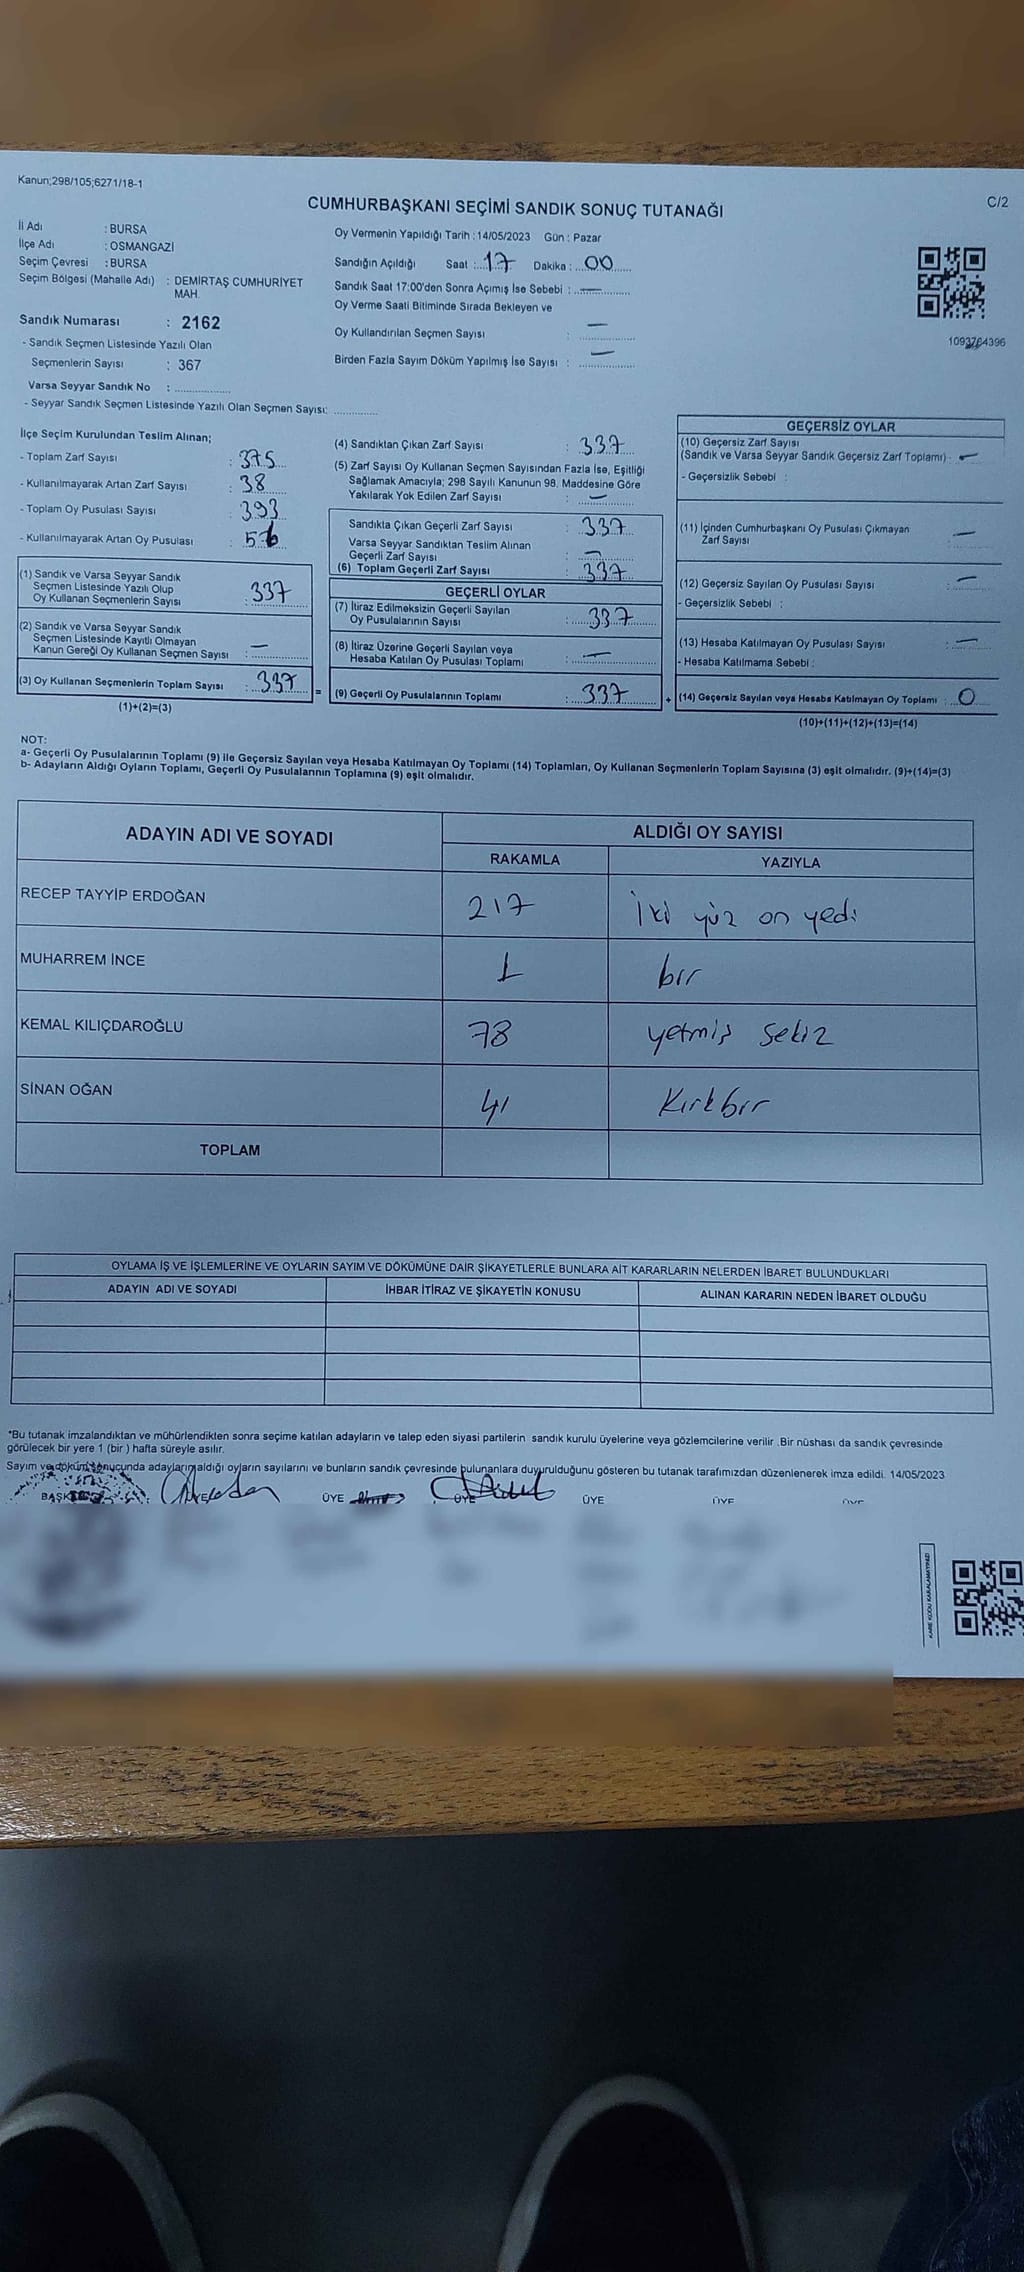 Kanun;298/105;6271/18-1
C/2
CUMHURBAŞKANI SEÇİMİ SANDIK SONUÇ TUTANAĞI
İl Adı : BURSA
İlçe Adı : OSMANGAZİ
Seçim Çevresi : BURSA
Seçim Bölgesi (Mahalle Adı) : DEMİRTAŞ CUMHURİYET
MAH.
Sandık Numarası : 2162
- Sandık Seçmen Listesinde Yazılı Olan
Seçmenlerin Sayısı : 367
Varsa Seyyar Sandık No : ..................
- Seyyar Sandık Seçmen Listesinde Yazılı Olan Seçmen Sayısı: ..............
Oy Vermenin Yapıldığı Tarih : 14/05/2023 Gün : Pazar
Sandığın Açıldığı Saat : 17 Dakika : 00
Sandık Saat 17:00'den Sonra Açımış İse Sebebi : —
Oy Verme Saati Bitiminde Sırada Bekleyen ve
Oy Kullandırılan Seçmen Sayısı : —
Birden Fazla Sayım Döküm Yapılmış İse Sayısı : —
İlçe Seçim Kurulundan Teslim Alınan;
- Toplam Zarf Sayısı : 375
- Kullanılmayarak Artan Zarf Sayısı : 38
- Toplam Oy Pusulası Sayısı : 393
- Kullanılmayarak Artan Oy Pusulası :
(1) Sandık ve Varsa Seyyar Sandık
Seçmen Listesinde Yazılı Olup
Oy Kullanan Seçmenlerin Sayısı : 337
(2) Sandık ve Varsa Seyyar Sandık
Seçmen Listesinde Kayıtlı Olmayan
Kanun Gereği Oy Kullanan Seçmen Sayısı : —
(3) Oy Kullanan Seçmenlerin Toplam Sayısı : 337 =
(1)+(2)=(3)
(4) Sandıktan Çıkan Zarf Sayısı : 337
(5) Zarf Sayısı Oy Kullanan Seçmen Sayısından Fazla İse, Eşitliği
Sağlamak Amacıyla; 298 Sayılı Kanunun 98. Maddesine Göre
Yakılarak Yok Edilen Zarf Sayısı : —
Sandıkta Çıkan Geçerli Zarf Sayısı : 337
Varsa Seyyar Sandıktan Teslim Alınan
Geçerli Zarf Sayısı : —
(6) Toplam Geçerli Zarf Sayısı : 337
GEÇERLİ OYLAR
(7) İtiraz Edilmeksizin Geçerli Sayılan
Oy Pusulalarının Sayısı : 337
(8) İtiraz Üzerine Geçerli Sayılan veya
Hesaba Katılan Oy Pusulası Toplamı : —
(9) Geçerli Oy Pusulalarının Toplamı : 337 +
GEÇERSİZ OYLAR
(10) Geçersiz Zarf Sayısı
(Sandık ve Varsa Seyyar Sandık Geçersiz Zarf Toplamı) - —
- Geçersizlik Sebebi :
(11) İçinden Cumhurbaşkanı Oy Pusulası Çıkmayan
Zarf Sayısı : —
(12) Geçersiz Sayılan Oy Pusulası Sayısı : —
- Geçersizlik Sebebi :
(13) Hesaba Katılmayan Oy Pusulası Sayısı : —
- Hesaba Katılmama Sebebi :
(14) Geçersiz Sayılan veya Hesaba Katılmayan Oy Toplamı : 0
(10)+(11)+(12)+(13)=(14)
NOT:
a- Geçerli Oy Pusulalarının Toplamı (9) ile Geçersiz Sayılan veya Hesaba Katılmayan Oy Toplamı (14) Toplamları, Oy Kullanan Seçmenlerin Toplam Sayısına (3) eşit olmalıdır. (9)+(14)=(3)
b- Adayların Aldığı Oyların Toplamı, Geçerli Oy Pusulalarının Toplamına (9) eşit olmalıdır.
ADAYIN ADI VE SOYADI ALDIĞI OY SAYISI
RAKAMLA YAZIYLA
RECEP TAYYİP ERDOĞAN 217 İki yüz on yedi
MUHARREM İNCE 1 bir
KEMAL KILIÇDAROĞLU 78 yetmiş sekiz
SİNAN OĞAN 41 Kırkbir
TOPLAM
OYLAMA İŞ VE İŞLEMLERİNE VE OYLARIN SAYIM VE DÖKÜMÜNE DAİR ŞİKAYETLERLE BUNLARA AİT KARARLARIN NELERDEN İBARET BULUNDUKLARI
ADAYIN ADI VE SOYADI İHBAR İTİRAZ VE ŞİKAYETİN KONUSU ALINAN KARARIN NEDEN İBARET OLDUĞU
*Bu tutanak imzalandıktan ve mühürlendikten sonra seçime katılan adayların ve talep eden siyasi partilerin sandık kurulu üyelerine veya gözlemcilerine verilir .Bir nüshası da sandık çevresinde
görülecek bir yere 1 (bir ) hafta süreyle asılır.
Sayım ve döküm sonucunda adayların aldığı oyların sayılarını ve bunların sandık çevresinde bulunanlara duyurulduğunu gösteren bu tutanak tarafımızdan düzenlenerek imza edildi. 14/05/2023
ÜYE ÜYE ÜYE ÜYE ÜYE
KARE KODU KARALAMAYINIZ!